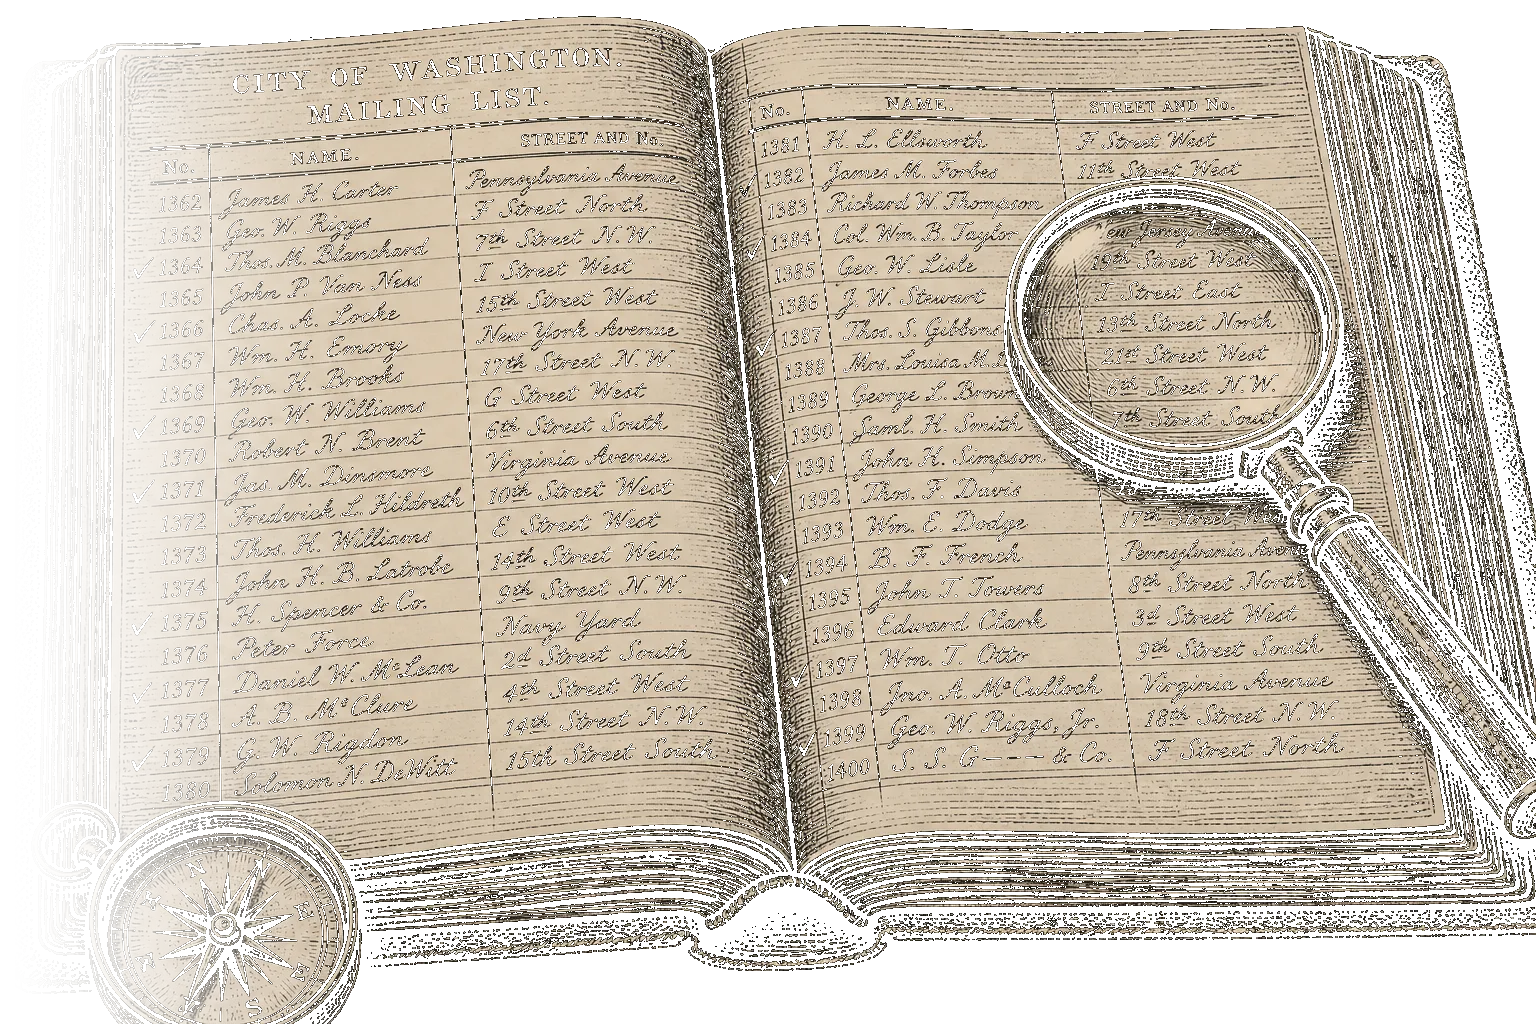 CITY OF WASHINGTON.
MAILING LIST.
No. NAME. STREET AND No.
1362 James H. Carter Pennsylvania Avenue
1363 Geo. W. Riggs F Street North
1364 Thos. M. Blanchard 7th Street N.W.
1365 John P. Van Ness I Street West
1366 Chas. A. Locke 15th Street West
1367 Wm. H. Emory New York Avenue
1368 Wm. H. Brooks 17th Street N.W.
1369 Geo. W. Williams G Street West
1370 Robert N. Brent 6th Street South
1371 Jas. M. Dinsmore Virginia Avenue
1372 Frederick L. Hildreth 10th Street West
1373 Thos. H. Williams E Street West
1374 John H. B. Latrobe 14th Street West
1375 H. Spencer & Co. 9th Street N.W.
1376 Peter Force Navy Yard
1377 Daniel W. McLean 2d Street South
1378 A. B. McClure 4th Street West
1379 G. W. Rigdon 14th Street N.W.
1380 Solomon N. DeWitt 15th Street South
No. NAME. STREET AND No.
1381 H. L. Ellsworth F Street West
1382 James M. Forbes 11th Street West
1383 Richard W. Thompson
1384 Col. Wm. B. Taylor Jersey Avenue
1385 Geo. W. Lisle 19th Street West
1386 J. W. Stewart I Street East
1387 Thos. S. Gibbons 13th Street North
1388 Mrs. Louisa M. 21st Street West
1389 George L. Brown 6th Street N.W.
1390 Saml. H. Smith 7th Street South
1391 John H. Simpson
1392 Thos. F. Davis
1393 Wm. E. Dodge 17th Street
1394 B. F. French Pennsylvania Aven
1395 John T. Towers 8th Street North
1396 Edward Clark 3d Street West
1397 Wm. T. Otto 9th Street South
1398 Jno. A. McCulloch Virginia Avenue
1399 Geo. W. Riggs, Jr. 18th Street N.W.
1400 S. S. G——— & Co. F Street North
N
E
E
S